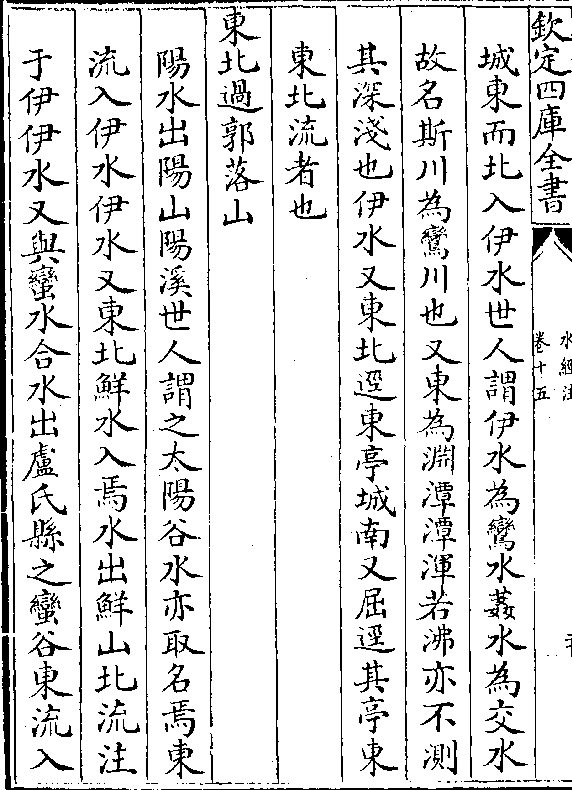 欽定四庫全書
水經注
卷十五
城東而北入伊水世人謂伊水為鸞水葌水為交水
故名斯川為鸞川也又東為淵潭潭渾若沸亦不測
其深淺也伊水又東北逕東亭城南又屈逕其亭東
東北流者也
東北過郭落山
陽水出陽山陽溪世人謂之太陽谷水亦取名焉東
流入伊水伊水又東北鮮水入焉水出鮮山北流注
于伊伊水又與蠻水合水出盧氏縣之蠻谷東流入